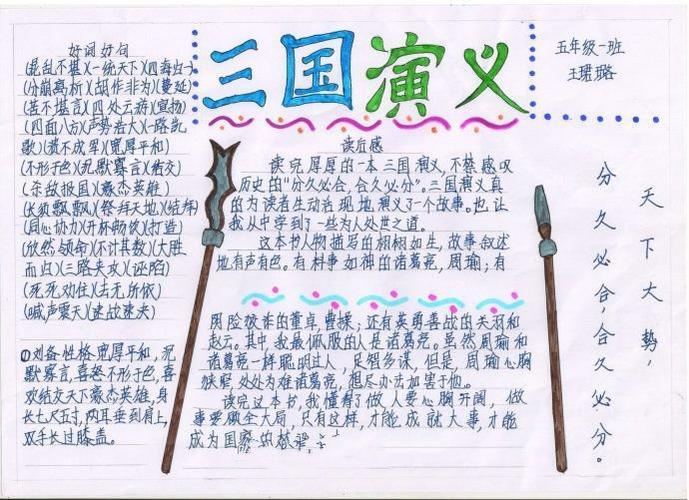 三国演义
五年级一班
王珺璐
好词好句
(混乱不堪)(一统天下)(四海归一)
(分崩离析)(胡作非为)(蔓延)
(苦不堪言)(四处云游)(宣扬)
(四面八方)(声势浩大)(一路凯
歌)(溃不成军)(宽厚平和)
(不形于色)(沉默寡言)(结交)
(杀敌报国)(豪杰英雄)
(长须飘飘)(祭拜天地)(结拜)
(同心协力)(开怀畅饮)(打造)
(欣然领命)(不计其数)(大胜
而归)(三路夹攻)(诬陷)
(死死劝住)(去无所依)
(喊声震天)(速战速决)
①刘备性格宽厚平和,沉
默寡言,喜怒不形于色,喜
欢结交天下豪杰英雄,身
长七尺五寸,两耳垂到肩上,
双手长过膝盖。
读后感
读完厚厚的一本三国演义,不禁感叹
历史的“分久必合,合久必分”。三国演义真
的为读者生动活现地演义了一个故事。也让
我从中学到了一些为人处世之道。
这本书人物描写的栩栩如生,故事叙述
地有声有色。有料事如神的诸葛亮,周瑜;有
阴险狡诈的董卓,曹操;还有英勇善战的关羽和
赵云。其中,我最佩服的人是诸葛亮。虽然周瑜和
诸葛亮一样聪明过人,足智多谋,但是,周瑜心胸
狭窄,处处为难诸葛亮,想尽办法加害于他。
读完这本书,我懂得了做人要心胸开阔,做
事要顾全大局,只有这样,才能成就大事,才能
成为国家的栋梁。
天下大势,
分久必合,合久必分。